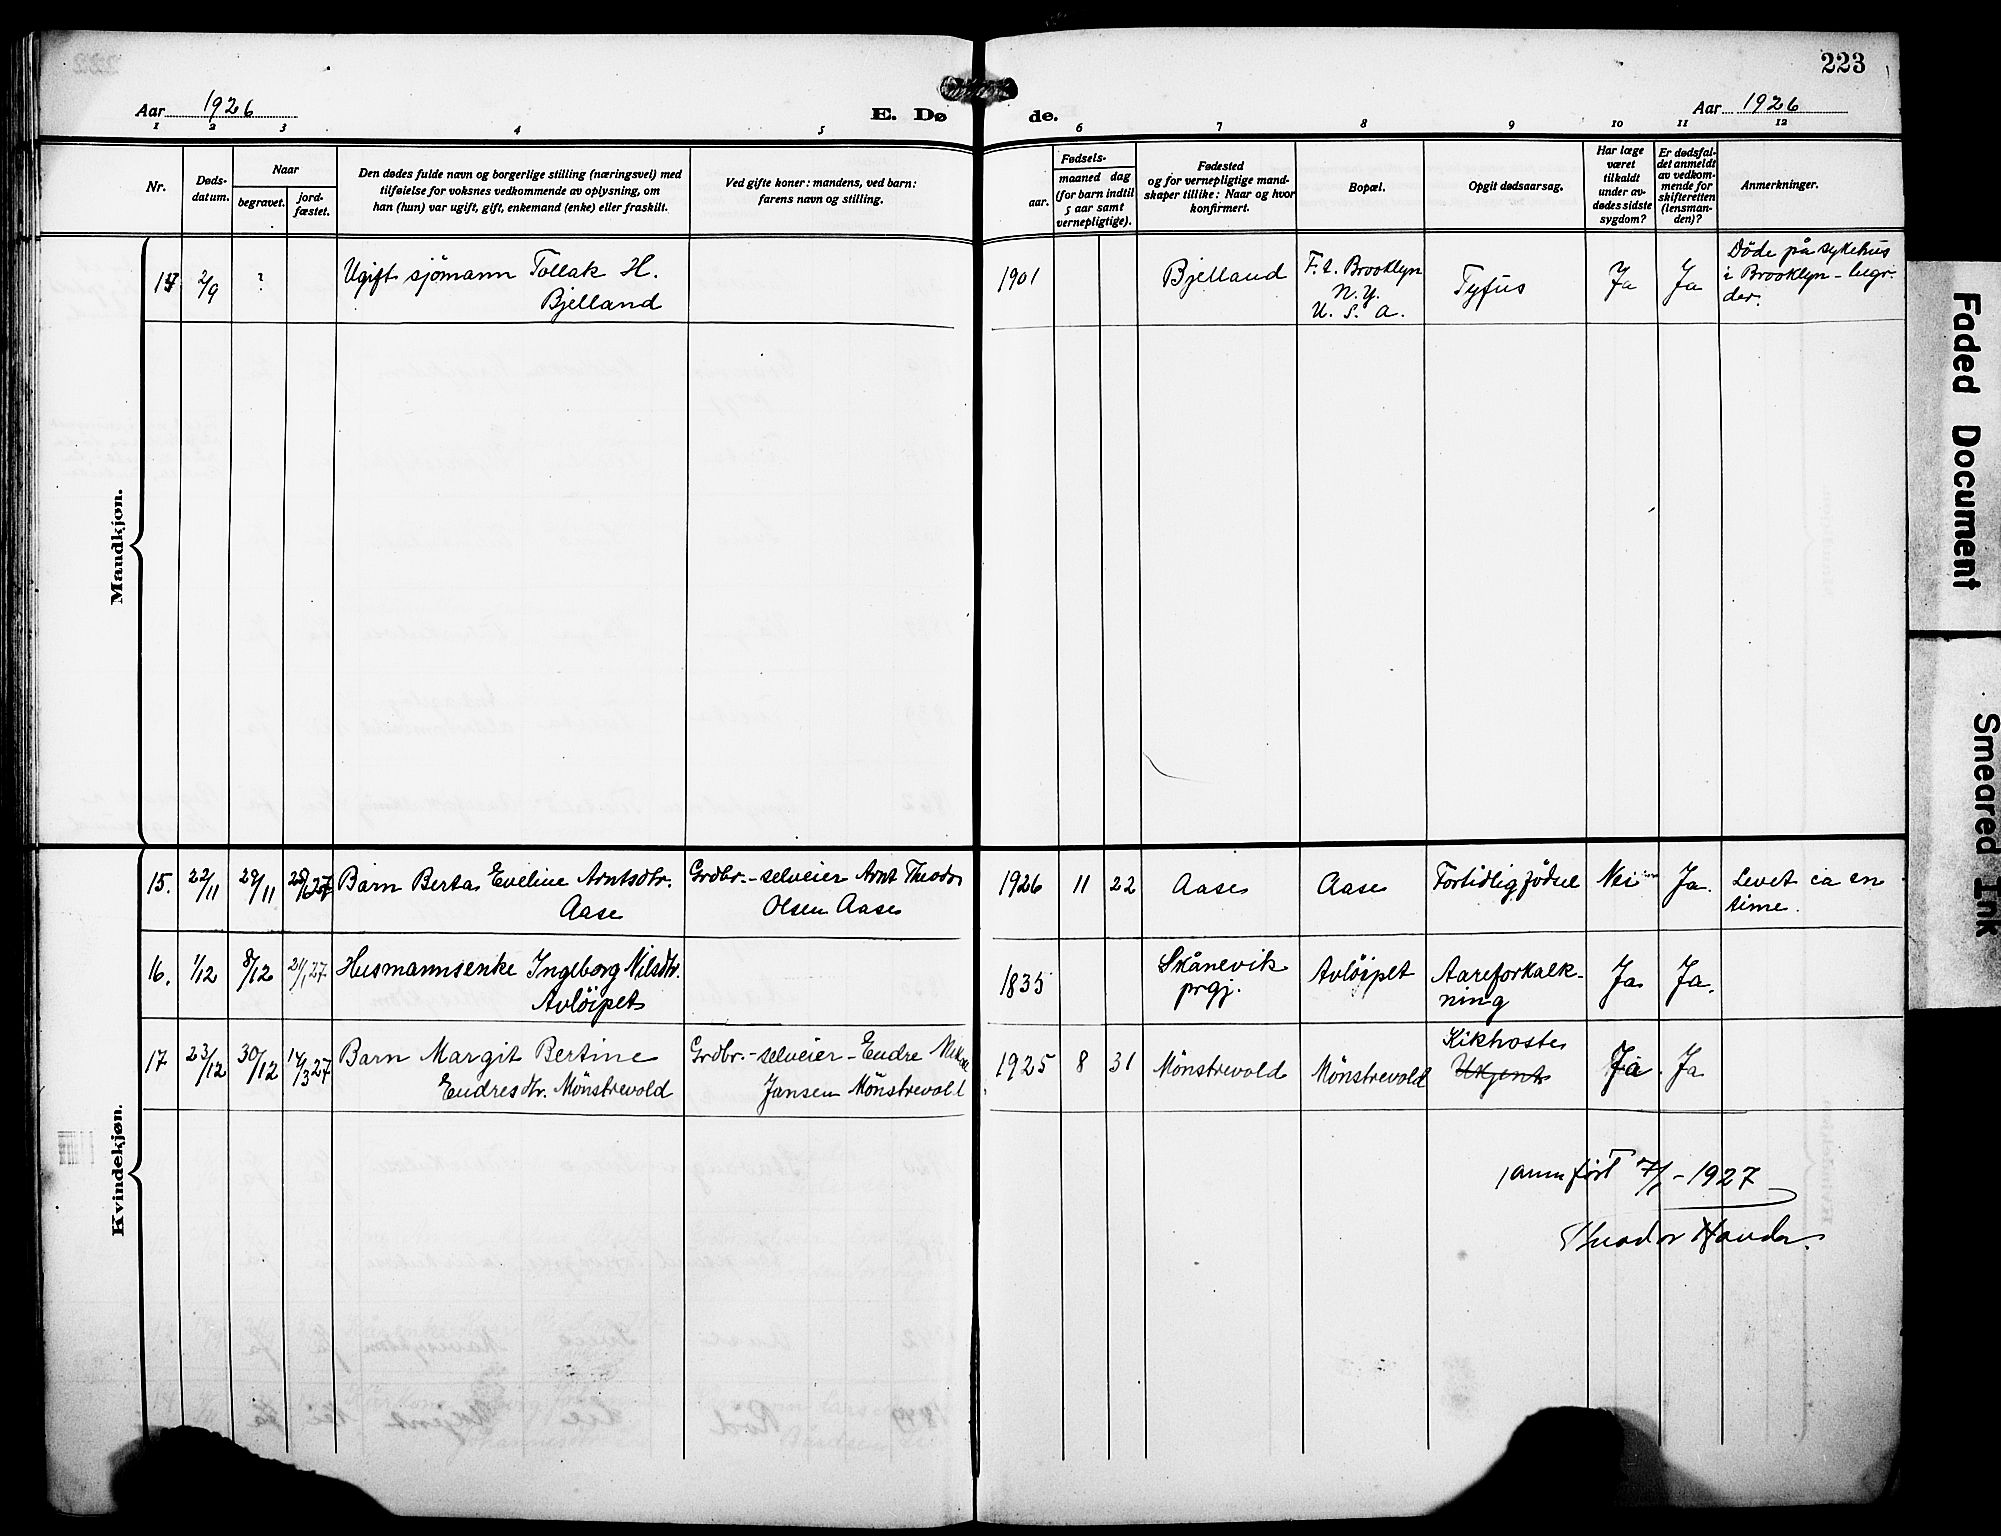 223
Aar 1926
E. Dø
de.
Aar 1926
1 2 3 4 5 6 7 8 9 10 11 12
Nr.
Døds-
datum.
Naar
begravet.
jord-
fæstet.
Den dødes fulde navn og borgerlige stilling (næringsvei) med
tilføielse for voksnes vedkommende av oplysning, om
han (hun) var ugift, gift, enkemand (enke) eller fraskilt.
Ved gifte koner: mandens, ved barn:
farens navn og stilling.
Fødsels-
aar.
maaned dag
(for barn indtil
5 aar samt
vernepligtige).
Fødested
og for vernepligtige mand-
skaper tillike: Naar og hvor
konfirmert.
Bopæl.
Opgit dødsaarsag.
Har læge
været
tilkaldt
under av-
dødes sidste
sygdom?
Er dødsfal-
det anmeldt
av vedkom-
mende for
skifteretten
(lensman-
den)?
Anmerkninger.
Mandkjøn.
2/9 ? Ugift sjömann Tollak H.
Bjelland
1901 Bjelland
F. t. Brooklyn
N. Y.
U. S. A.
Tyfus Ja Ja
Døde på sykehus
i Brooklyn - begr.
der.
Kvindekjøn.
15. 22/11 29/11 Barn Berta Eveline Arntsdtr.
Aase
Grdbr. - selveier Arnt Theodor
Olsen Aase
1926 11 22 Aase Aase Fortidlig födsel Nei Ja.
Levet ca en
time.
16. 1/12 8/12 Husmannsenke Ingeborg Nilsdtr.
Avlöipet
1835
Skånevik
prgj.
Avlöipet
Aareforkalk-
ning
Ja Ja.
17 23/12 30/12 14/3 27 Barn Margit Bertine
Endresdtr. Mönstrevold
Grdbr. - selveier - Endre
Jansen Mönstrevold
1925 8 31 Mönstrevold Mönstrevold
Kikhoste
Ukjent
Ja Ja
1927
Faded Document
Smeared Ink